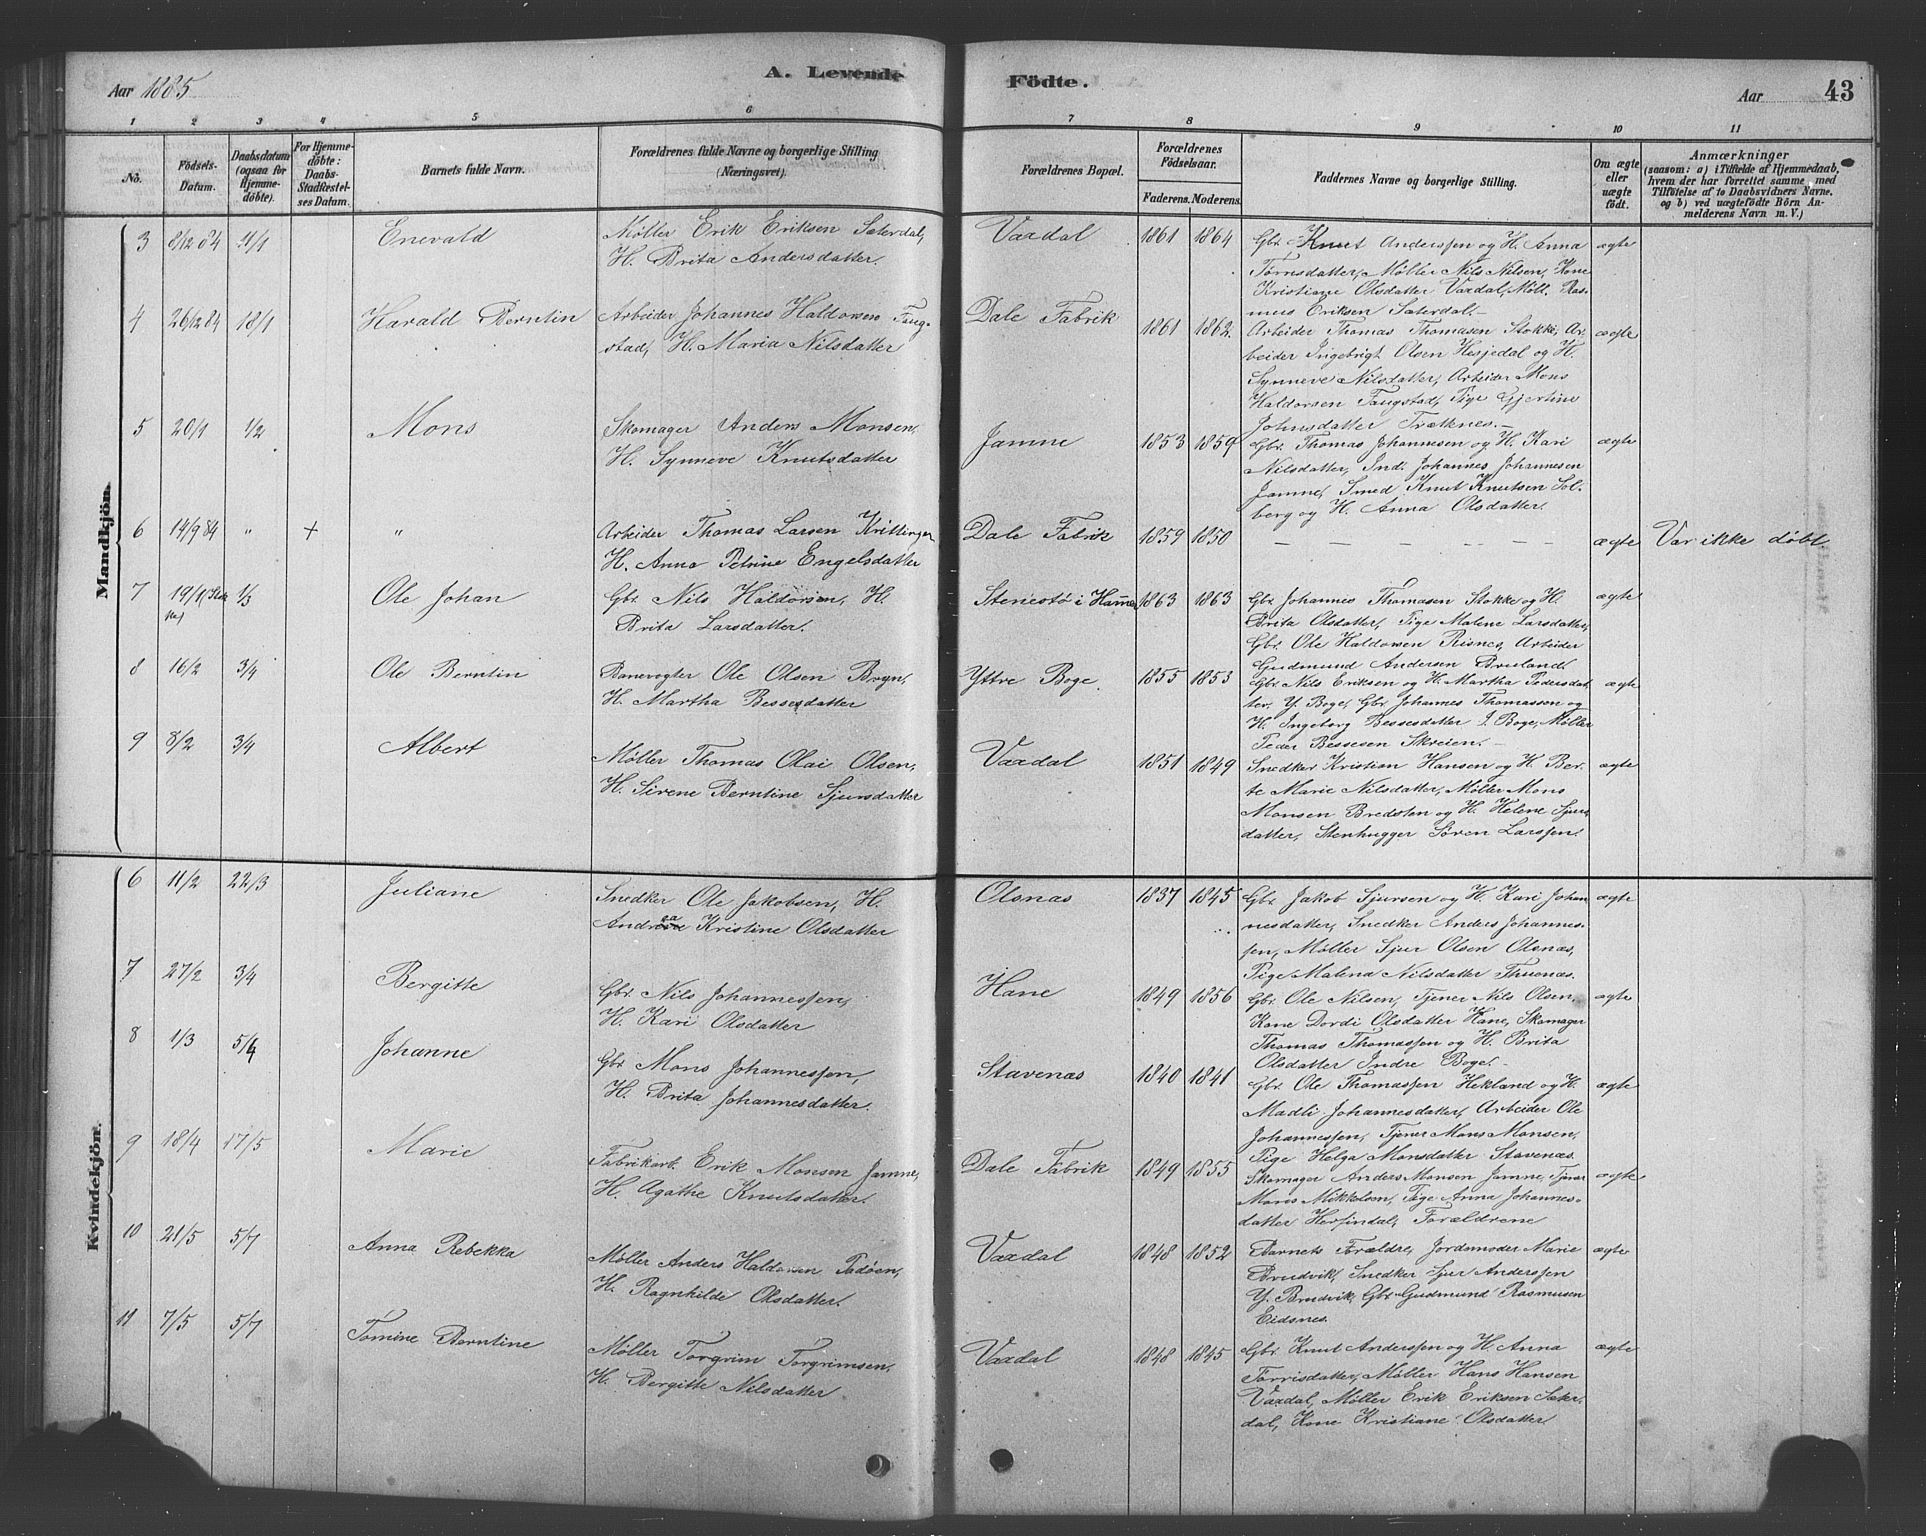 Aar 1885
A. Levende Födte.
Aar 43
1 2 3 4 5 6 7 8 9 10 11
No.
Födsels-
Datum.
Daabsdatum
(ogsaa for
Hjemme-
döbte).
For Hjemme-
döbte:
Daabs-
Stadfæstel-
ses Datum.
Barnets fulde Navn.
Forældrenes fulde Navne og borgerlige Stilling
(Næringsvei).
Forældrenes Bopæl.
Forældrenes
Födselsaar.
Faderens. Moderens.
Faddernes Navne og borgerlige Stilling.
Om ægte
eller
uægte
födt.
Anmærkninger
(saasom: a) i Tilfælde af Hjemmedaab,
hvem der har forrettet samme med
Tilföielse af to Daabsvidners Navne,
og b) ved uægtefödte Börn An-
melderens Navn m. V.)
Mandkjön.
3 8/12 84 11/1 Enevald
Møller Erik Eriksen Sæterdal,
H. Brita Andersdatter.
Vaxdal 1861 1864
Gbr. Knut Anderssen og H. Anna
Tørrisdatter, Møller Nils Nilsen, Kone
Kristiane Olsdatter Vaxdal, Møll. Ras-
mus Eriksen Sæterdal.
ægte
4 26/12 84 18/1 Harald Berntin
Arbeider Johannes Haldorsen Faug-
stad, H. Maria Nilsdatter
Dale Fabrik 1861 1862
Arbeider Thomas Thomasen Stokke, Ar-
beider Ingebrigt Olsen Hesjedal og H.
Synneve Nilsdatter, Arbeider Mons
Haldorsen Faugstad, Pige Gjertine
Johnsdatter Trætknes.
ægte
5 20/1 1/2 Mons
Skomager Anders Monsen,
H. Synneve Knutsdatter
Jamne 1853 1859
Gbr. Thomas Johannesen og H. Kari
Nilsdatter, Ind. Johannes Johannesen
Jamne, Smed Knut Knutsen Sol-
berg og H. Anna Olsdatter.
ægte
6 14/9 84 " + "
Arbeider Thomas Larsen
H. Anna Petrine Engelsdatter
Dale Fabrik 1859 1850
— — — — — —
ægte Var ikke døbt.
7 19/1 1/3 Ole Johan
Gbr. Nils Haldorsen, H.
Brita Larsdatter.
Stenestø i Hamre 1863 1863
Gbr. Johannes Thomasen Stokke og H.
Brita Olsdatter, Pige Malene Larsdatter,
Gbr. Ole Haldorsen Risnes, Arbeider
Gudmund Andersen Bruland.
ægte
8 16/2 3/4 Ole Berntin
Banevogter Ole Olsen Bryn,
H. Martha Bessesdatter
Yttre Boge. 1855 1853
Gbr. Nils Eriksen og H. Martha Pedersdat-
ter, Y. Boge, Gbr Johannes Thomasson og
H. Ingeborg Bessesdatter I. Boge, Møller
Peder Bessesen Skreien.
ægte
9 8/2 3/4 Albert
Møller Thomas Olai Olsen,
H. Sirene Berntine Sjursdatter
Vaxdal 1851 1849
Snedker Kristian Hansen og H. Ber-
te Marie Nilsdatter, Møller Mons
Monsen Bredsten og H. Helene Sjurs-
datter, Stenhugger Søren Larssen.
ægte
Kvindekjön.
6 11/2 22/3 Juliane
Snedker Ole Jakobsen, H.
Andrea Kristine Olsdatter
Olsnas 1837 1845
Gbr. Jakob Sjursen og H. Kari Johan
nesdatter, Snedker Anders Johannes-
sen, Møller Sjur Olsen Olsnas,
Pige Malena Nilsdatter Thuenas.
ægte
7 27/2 3/4 Bergitte
Gbr. Nils Johannessen,
H. Kari Olsdatter
Hane 1849 1856
Gbr. Ole Nilsen, Tjener Nils Olsen,
Kone Dordi Olsdatter Hane, Skomager
Thomas Thomassen og H. Brita
Olsdatter Indre Boge.
ægte
8 1/3 5/4 Johanne
Gbr Mons Johannessen,
H. Brita Johannesdatter.
Stavenas 1840 1841
Gbr. Ole Thomassen Hekland og H.
Madli Johannesdatter, Arbeider Ole
Johannessen, Tjener Mons Monsen,
Pige Helga Monsdatter Stavenas.
ægte
9 18/4 17/5 Marie
Fabrikarb. Erik Monsen Jamne,
H. Agathe Knutsdatter.
Dale Fabrik 1849 1855
Skomager Anders Monsen Jamne, Tjener
Mons Mikkelsen, Pige Anna Johannes-
datter Herfindal, Forældrene
ægte
10 21/5 5/7 Anna Rebekka
Møller Anders Haldorsen Tadøen,
H. Ragnhilde Olsdatter.
Vaxdal 1848 1852
Barnets Forældre, Jordemoder Marie
Brudvik, Snedker Sjur Anderssen
Y. Brudvik, Gbr Gudmund Rasmusen
Eidsnes.
ægte
11 7/5 5/7 Tomine Berntine
Møller Torgrim Torgrimsen,
H. Bergitte Nilsdatter
Vaxdal 1848 1845
Gbr. Knut Anderssen og H. Anna
Tørrisdatter, Møller Hans Hansen
Vaxdal, Møller Erik Eriksen Sæter-
dal, Kone Kristiane Olsdatter
ægte